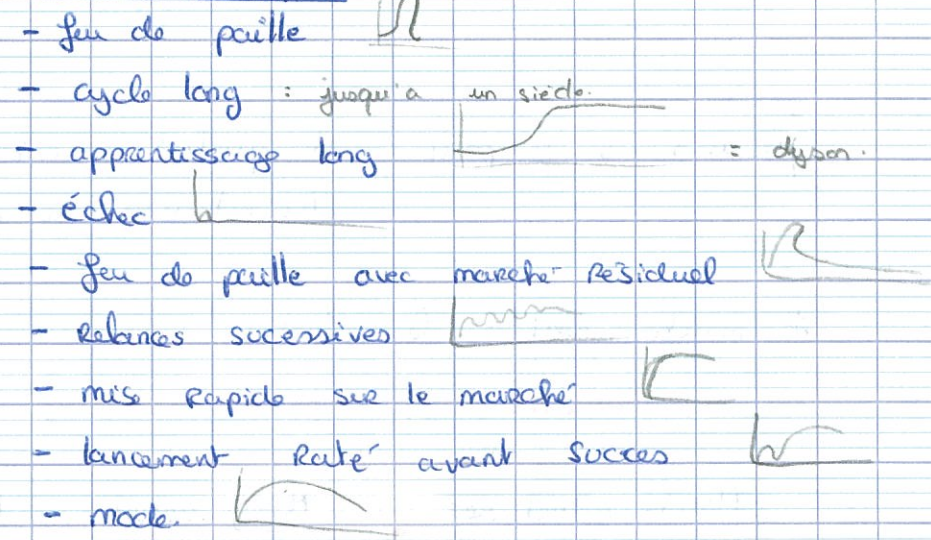 - feu de paille
- cycle long : jusqu'a un siècle.
- apprentissage long = dyson.
- échec
- feu de paille avec marché Résiduel
- Relances sucessives
- mise Rapide sur le marché
- lancement Raté avant succes
- mode.